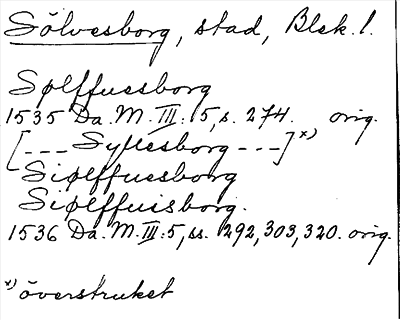 Sölvesborg, stad, Blek. l.
Sølffuesborg
1535 Da. M. III: 5, s. 274. orig.
[--- Syllesborg ---] x)
Siølffuesborg
Siølffuisborg.
1536 Da. M. III: 5, ss. 292, 303, 320. orig.
x) överstruket